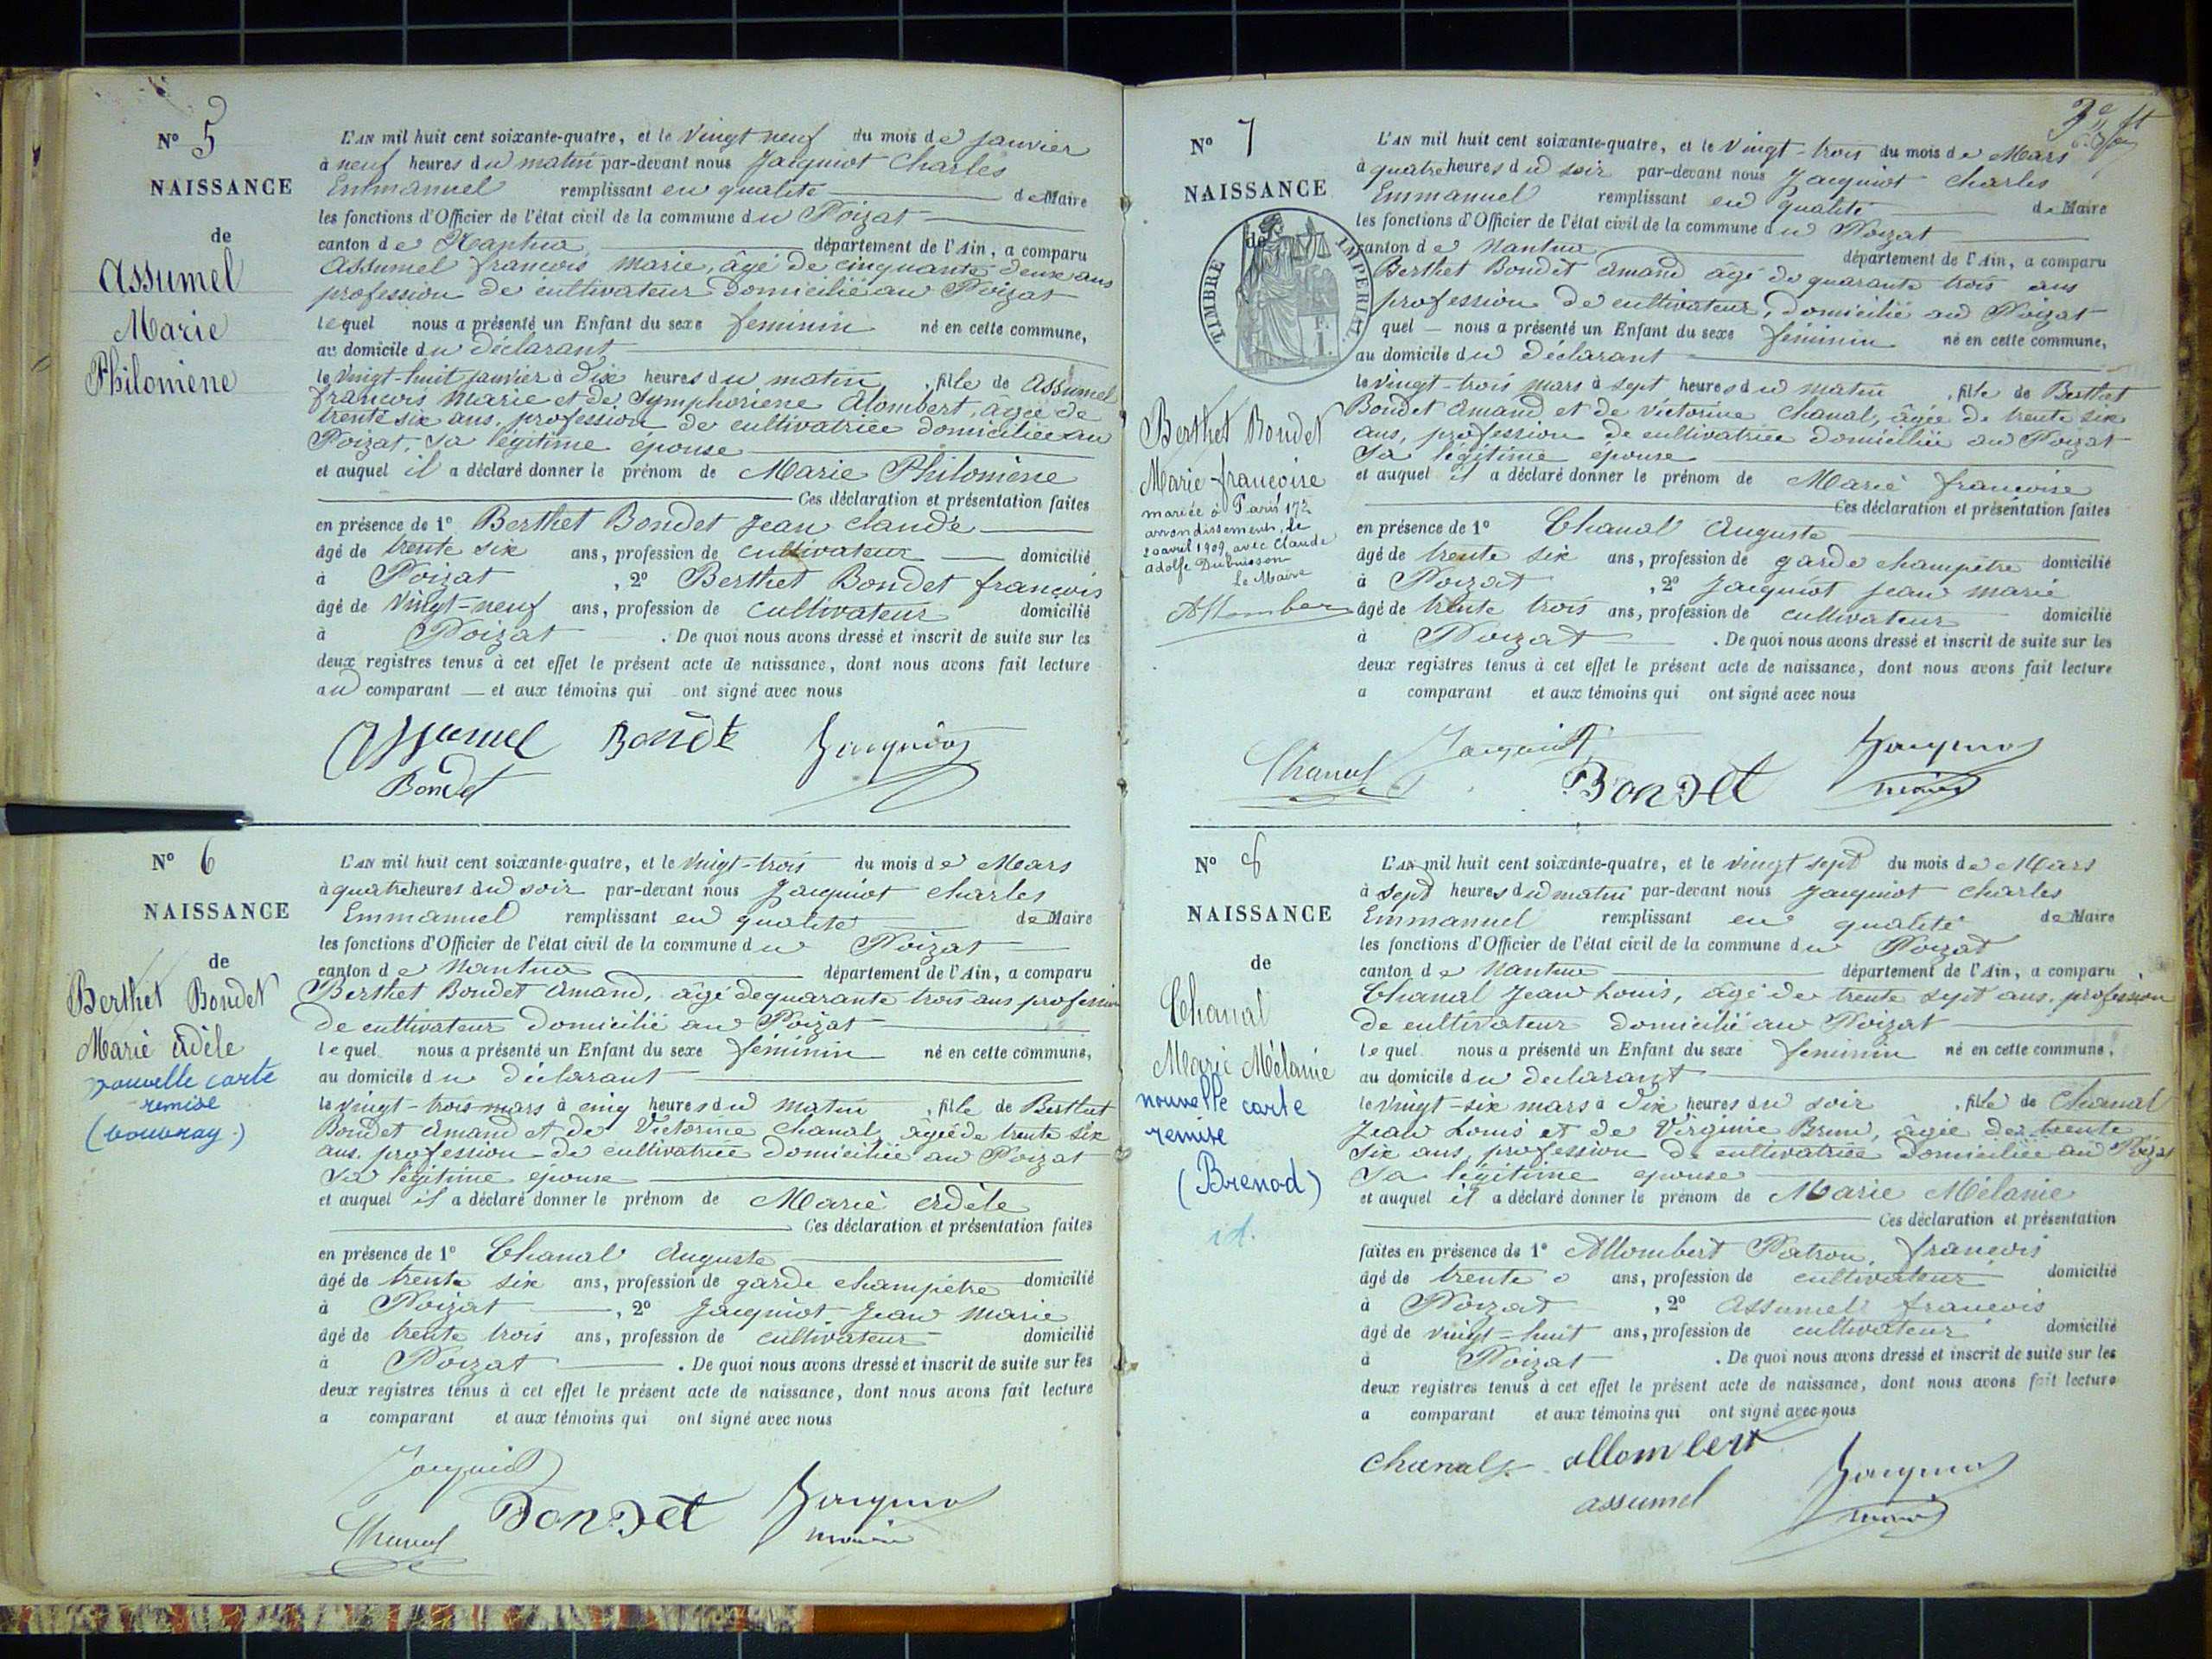 N° 5
NAISSANCE
de
Assumel
Marie
Philomène
L'AN mil huit cent soixante-quatre, et le vingt neuf du mois de janvier
à neuf heures du matin par-devant nous Jacquiot Charles
Emmanuel remplissant en qualité de Maire
les fonctions d'Officier de l'état civil de la commune du Poizat
canton de Nantua département de l'Ain, a comparu
Assumel françois Marie, âgé de cinquante deux ans
profession de cultivateur domicilié au Poizat
lequel nous a présenté un Enfant du sexe feminin né en cette commune,
au domicile du déclarant
le vingt-huit janvier à dix heures du matin, fille de Assumel
françois Marie et de Symphoriene Alombert, âgée de
trente six ans, profession de cultivatrice domiciliée au
Poizat, sa légitime épouse
et auquel il a déclaré donner le prénom de Marie Philomène
Ces déclaration et présentation faites
en présence de 1° Berthet Bondet Jean claude
âgé de trente six ans, profession de cultivateur domicilié
à Poizat, 2° Berthet Bondet françois
âgé de vingt-neuf ans, profession de cultivateur domicilié
à Poizat. De quoi nous avons dressé et inscrit de suite sur les
deux registres tenus à cet effet le présent acte de naissance, dont nous avons fait lecture
au comparant et aux témoins qui ont signé avec nous
Assumel Bondt Jacquiot
Bondet
N° 6
NAISSANCE
de
Berthet Bondet
Marie Adèle
nouvelle carte
remise
(vouvray)
L'AN mil huit cent soixante-quatre, et le vingt-trois du mois de Mars
à quatre heures du soir par-devant nous Jacquiot Charles
Emmanuel remplissant en qualité de Maire
les fonctions d'Officier de l'état civil de la commune du Poizat
canton de Nantua département de l'Ain, a comparu
Berthet Bondet Amand, âgé de quarante trois ans profession
de cultivateur domicilié au Poizat
lequel nous a présenté un Enfant du sexe féminin né en cette commune,
au domicile du déclarant
le vingt-trois mars à cinq heures du matin, fille de Berthet
Bondet Amand et de Victorine Chanal, âgée de trente six
ans, profession de cultivatrice domiciliée au Poizat
sa légitime épouse
et auquel il a déclaré donner le prénom de Marie Adèle
Ces déclaration et présentation faites
en présence de 1° Chanal Auguste
âgé de trente six ans, profession de garde champêtre domicilié
à Poizat, 2° Jacquiot Jean Marie
âgé de trente trois ans, profession de cultivateur domicilié
à Poizat. De quoi nous avons dressé et inscrit de suite sur les
deux registres tenus à cet effet le présent acte de naissance, dont nous avons fait lecture
a comparant et aux témoins qui ont signé avec nous
Jacquiot
Chanal Bondet Jacquiot
maire
N° 7
NAISSANCE
de
TIMBRE IMPERIAL
1 F.
Berthet Bondet
Marie françoise
mariée à Paris 17e
arrondissement, le
20 avril 1909, avec Claude
Adolfe Dubuisson
Le Maire
Allombert
L'AN mil huit cent soixante-quatre, et le vingt-trois du mois de Mars
à quatre heures du soir par-devant nous Jacquiot Charles
Emmanuel remplissant en qualité de Maire
les fonctions d'Officier de l'état civil de la commune du Poizat
canton de Nantua département de l'Ain, a comparu
Berthet Bondet Amand âgé de quarante trois ans
profession de cultivateur, domicilié au Poizat
quel nous a présenté un Enfant du sexe féminin né en cette commune,
au domicile du déclarant
le vingt-trois mars à sept heures du matin, fille de Berthet
Bondet Amand et de victorine Chanal, âgée de trente six
ans, profession de cultivatrice domiciliée au Poizat
sa légitime épouse
et auquel il a déclaré donner le prénom de Marie françoise
Ces déclaration et présentation faites
en présence de 1° Chanal Auguste
âgé de trente six ans, profession de garde champêtre domicilié
à Poizat, 2° Jacquiot Jean Marie
âgé de trente trois ans, profession de cultivateur domicilié
à Poizat. De quoi nous avons dressé et inscrit de suite sur les
deux registres tenus à cet effet le présent acte de naissance, dont nous avons fait lecture
a comparant et aux témoins qui ont signé avec nous
Chanal Jacquiot Bondet Jacquiot
maire
N° 8
NAISSANCE
de
Chanal
Marie Mélanie
nouvelle carte
remise
(Brenod)
L'AN mil huit cent soixante-quatre, et le vingt sept du mois de Mars
à sept heures du matin par-devant nous Jacquiot Charles
Emmanuel remplissant en qualité de Maire
les fonctions d'Officier de l'état civil de la commune du Poizat
canton de Nantua département de l'Ain, a comparu
Chanal Jean Louis, âgé de trente sept ans, profession
de cultivateur domicilié au Poizat
lequel nous a présenté un Enfant du sexe feminin né en cette commune,
au domicile du declarant
le vingt-six mars à dix heures du soir, fille de Chanal
Jean Louis et de Virginie Brun, âgée de trente
six ans, profession de cultivatrice domiciliée au Poizat
sa légitime épouse
et auquel il a déclaré donner le prénom de Marie Mélanie
Ces déclaration et présentation
faites en présence de 1° Allombert Patron, françois
âgé de trente ans, profession de cultivateur domicilié
à Poizat, 2° Assumel françois
âgé de vingt-huit ans, profession de cultivateur domicilié
à Poizat. De quoi nous avons dressé et inscrit de suite sur les
deux registres tenus à cet effet le présent acte de naissance, dont nous avons fait lecture
a comparant et aux témoins qui ont signé avec nous
Chanal allombert Jacquiot
assumel maire